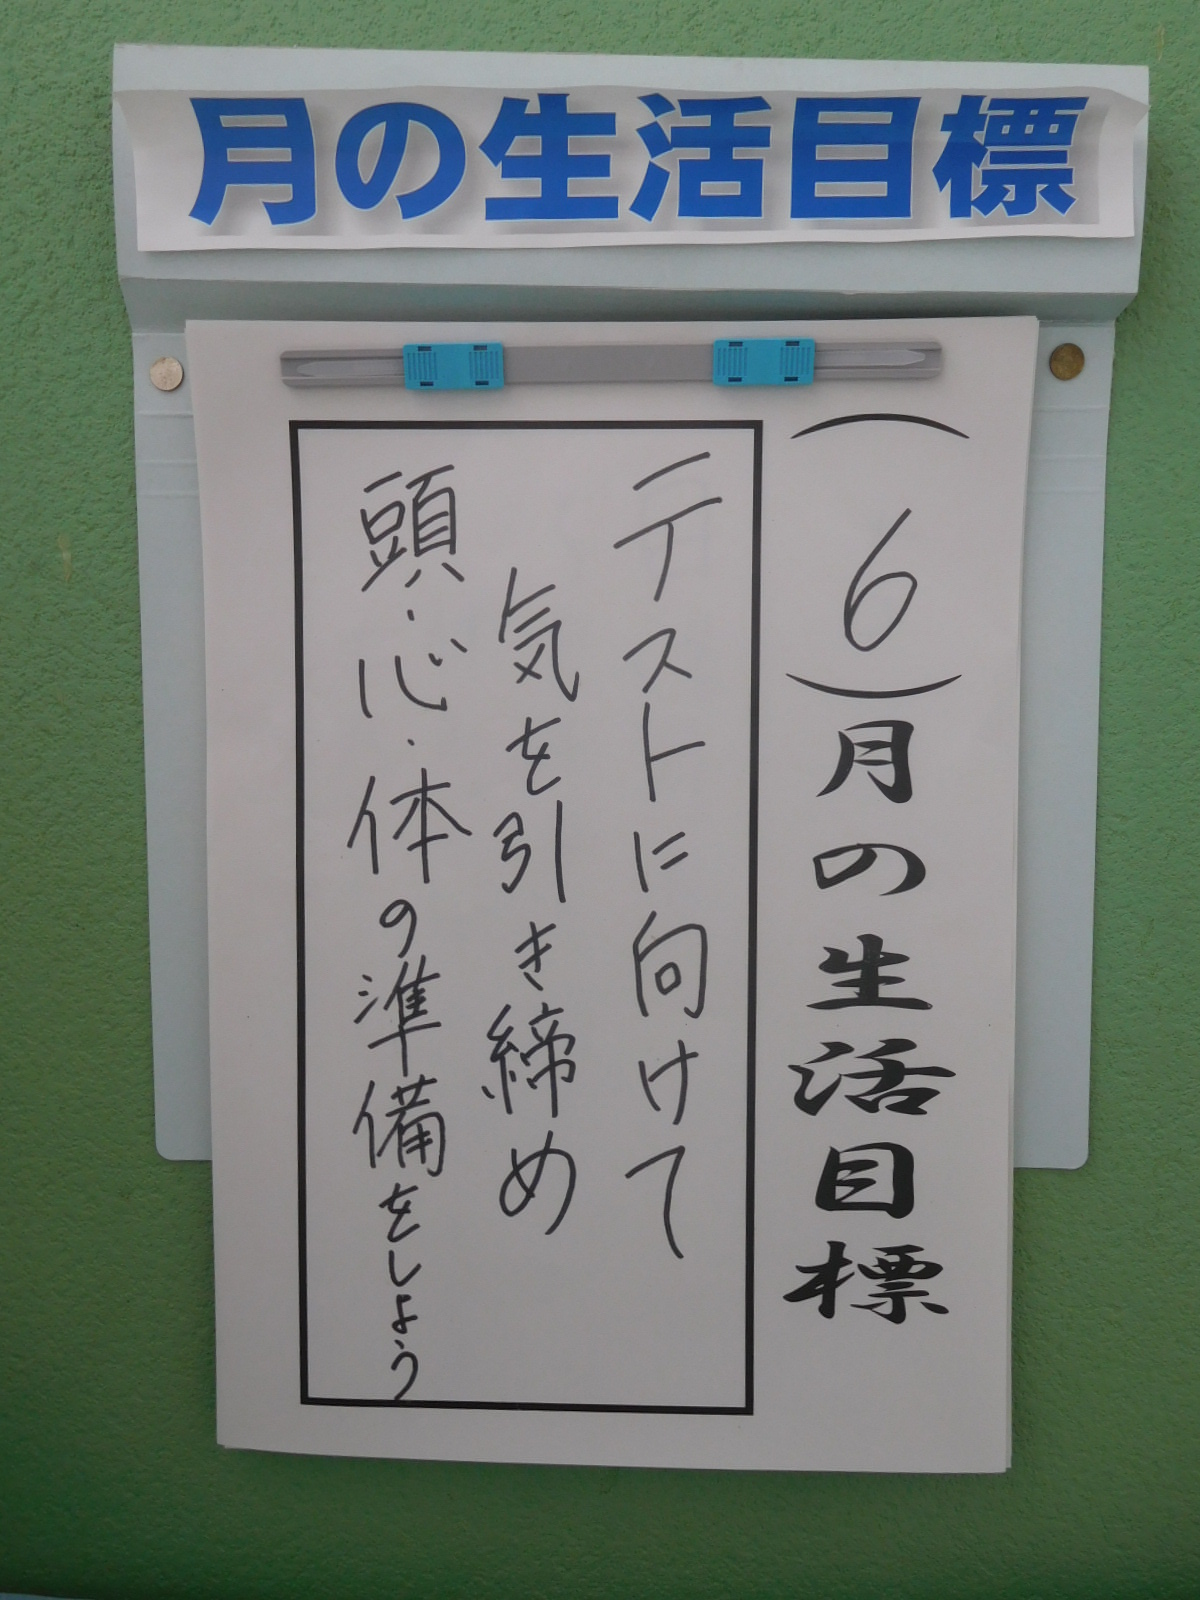 月の生活目標
(6)月の生活目標
テストに向けて
気を引き締め
頭・心・体の準備をしよう